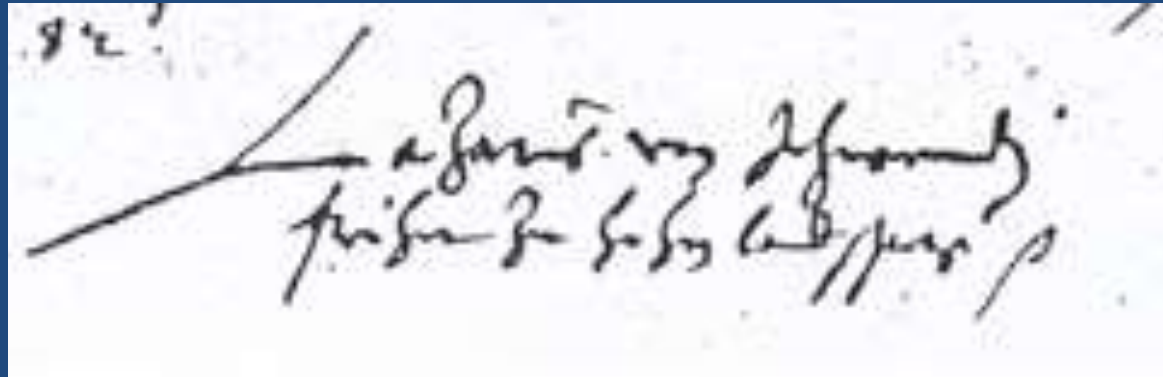 82
Lazarus von Schwendi
friher zu hohen landsperg